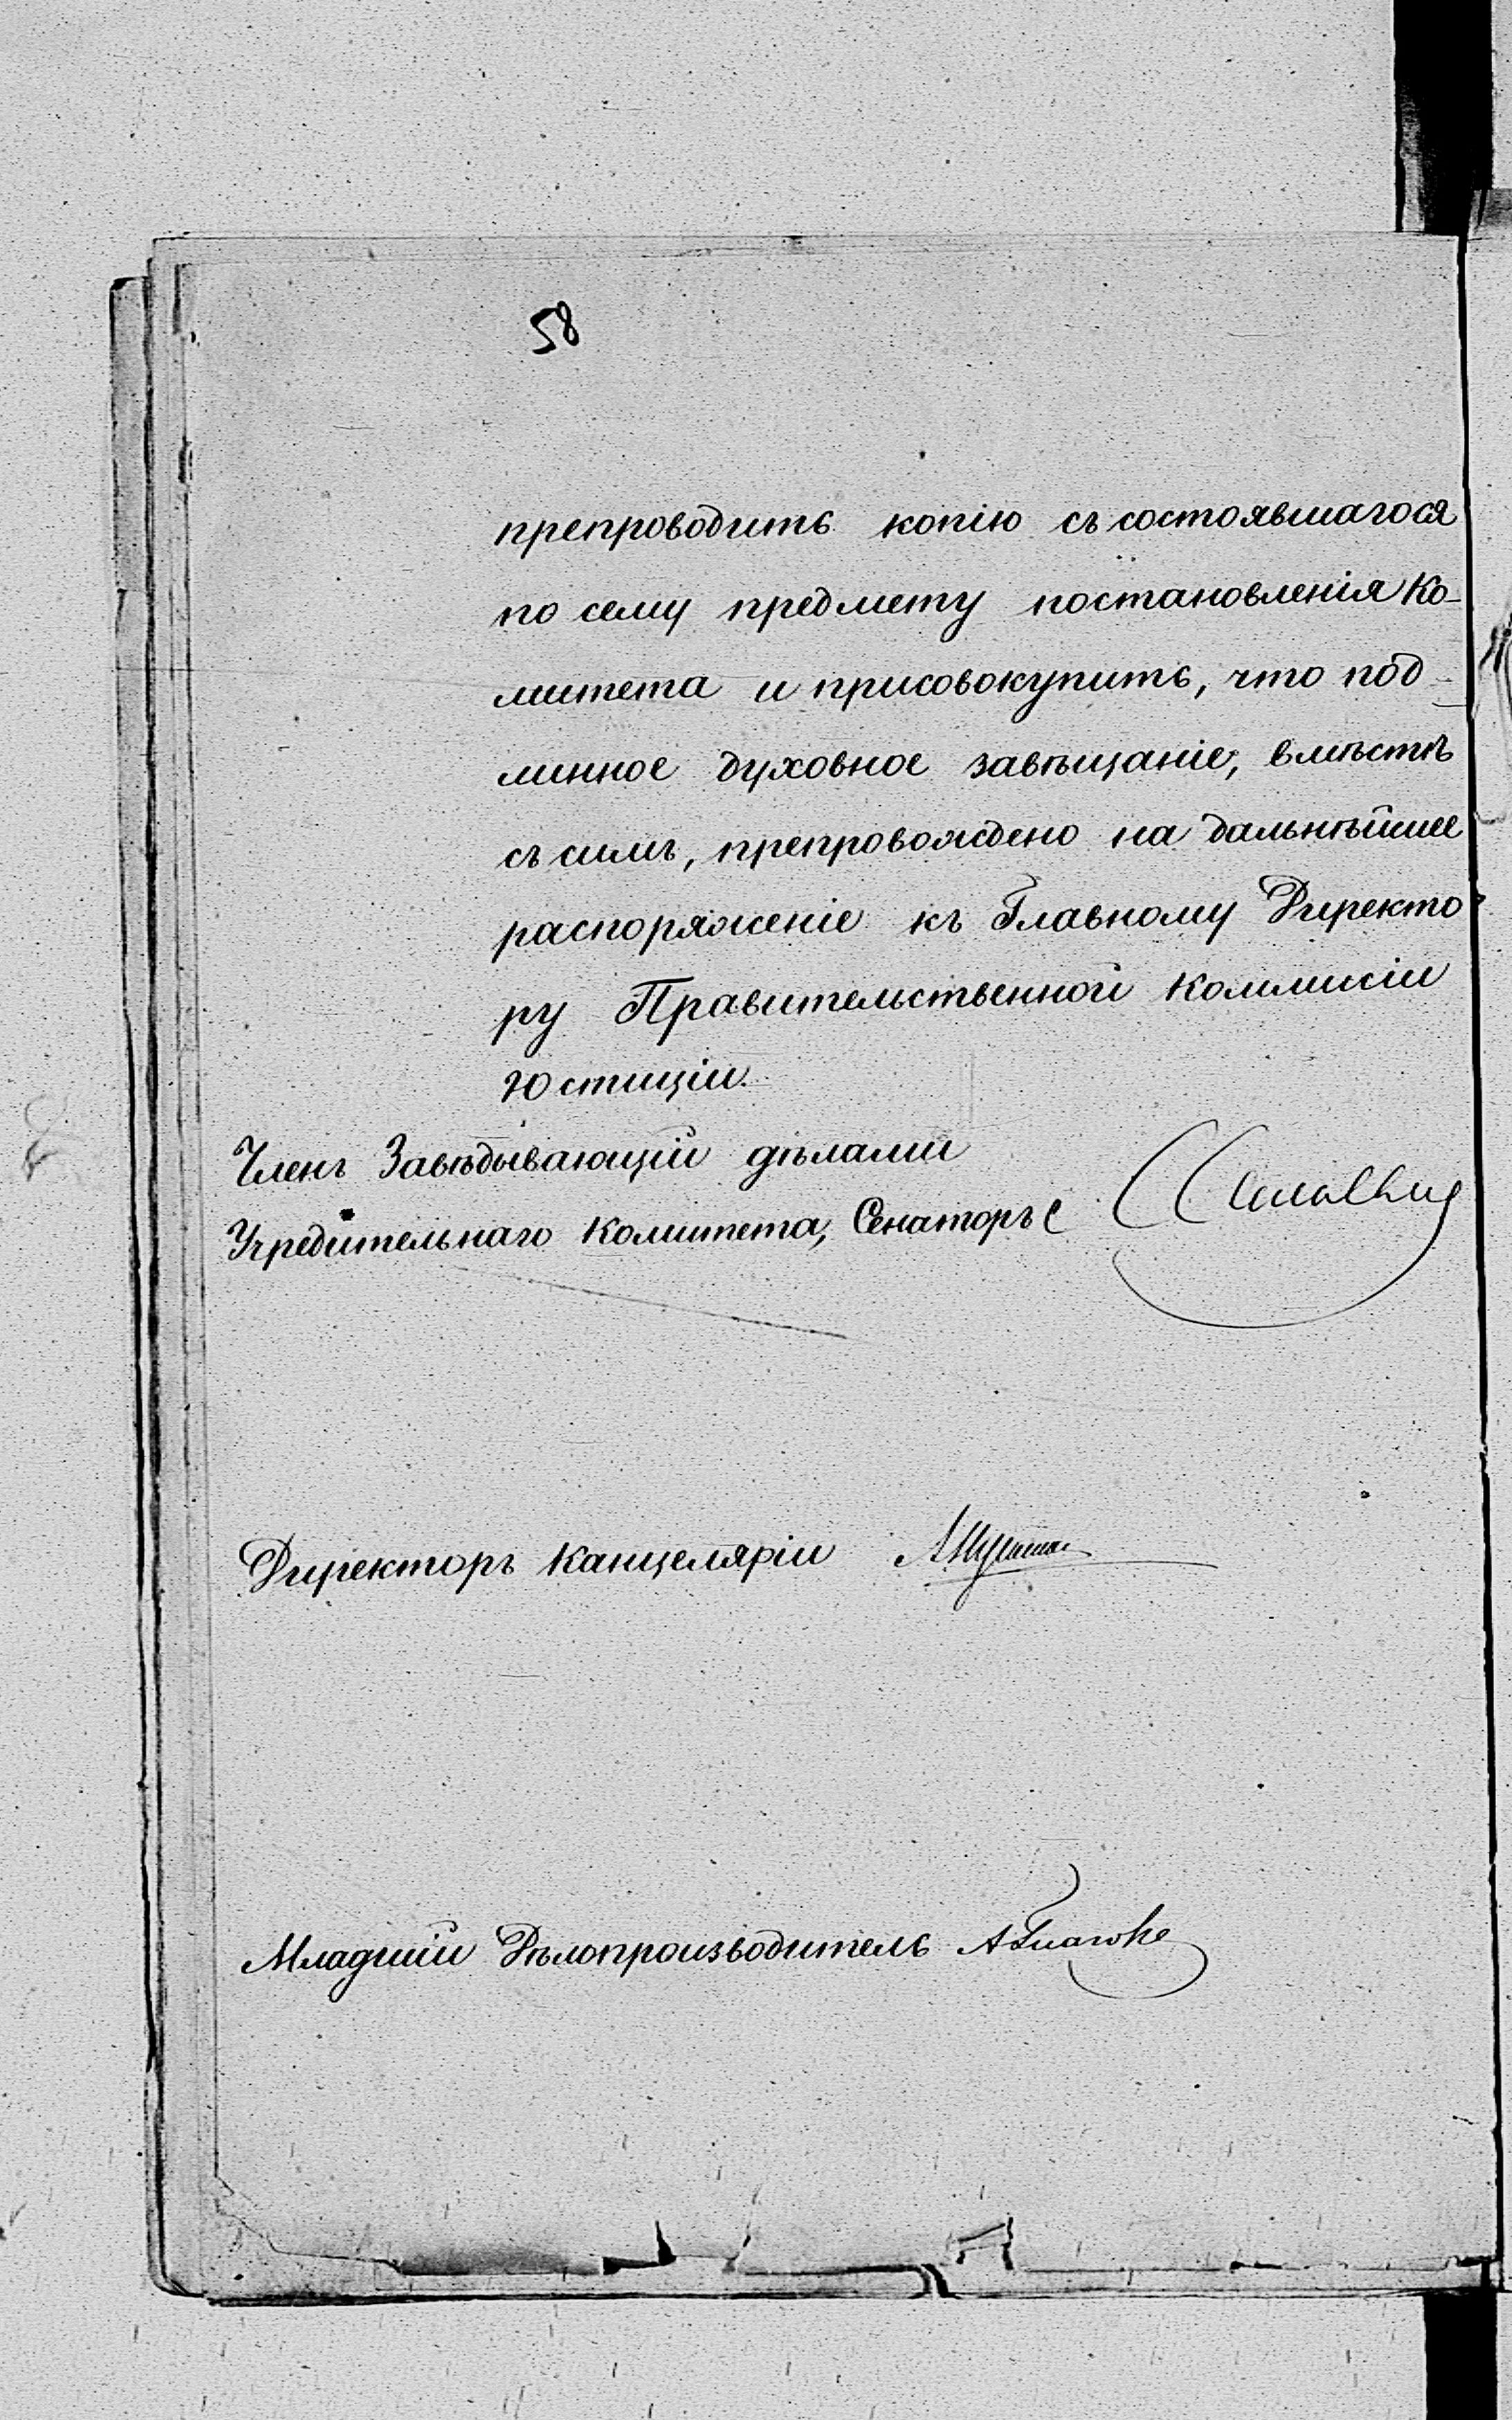 58
препроводить копію съ состоявшагося
по сему предмету постановленія Ко-
митета и присовокупить, что под-
линное духовное завѣщаніе, вмѣстѣ
съ симъ, препровождено на дальнѣйшее
распоряженіе къ Главному Директо
ру Правительственной Коммисіи
Юстиціи.
Членъ Завѣдывающій дѣлами
Учредительнаго Комитета, Сенаторъ
Директоръ Канцеляріи
Младшій Дѣлопроизводитель